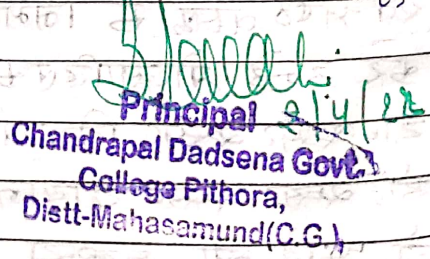 Principal 2/4/22
Chandrapal Dadsena Govt.
College Pithora,
Distt-Mahasamund(C.G.)